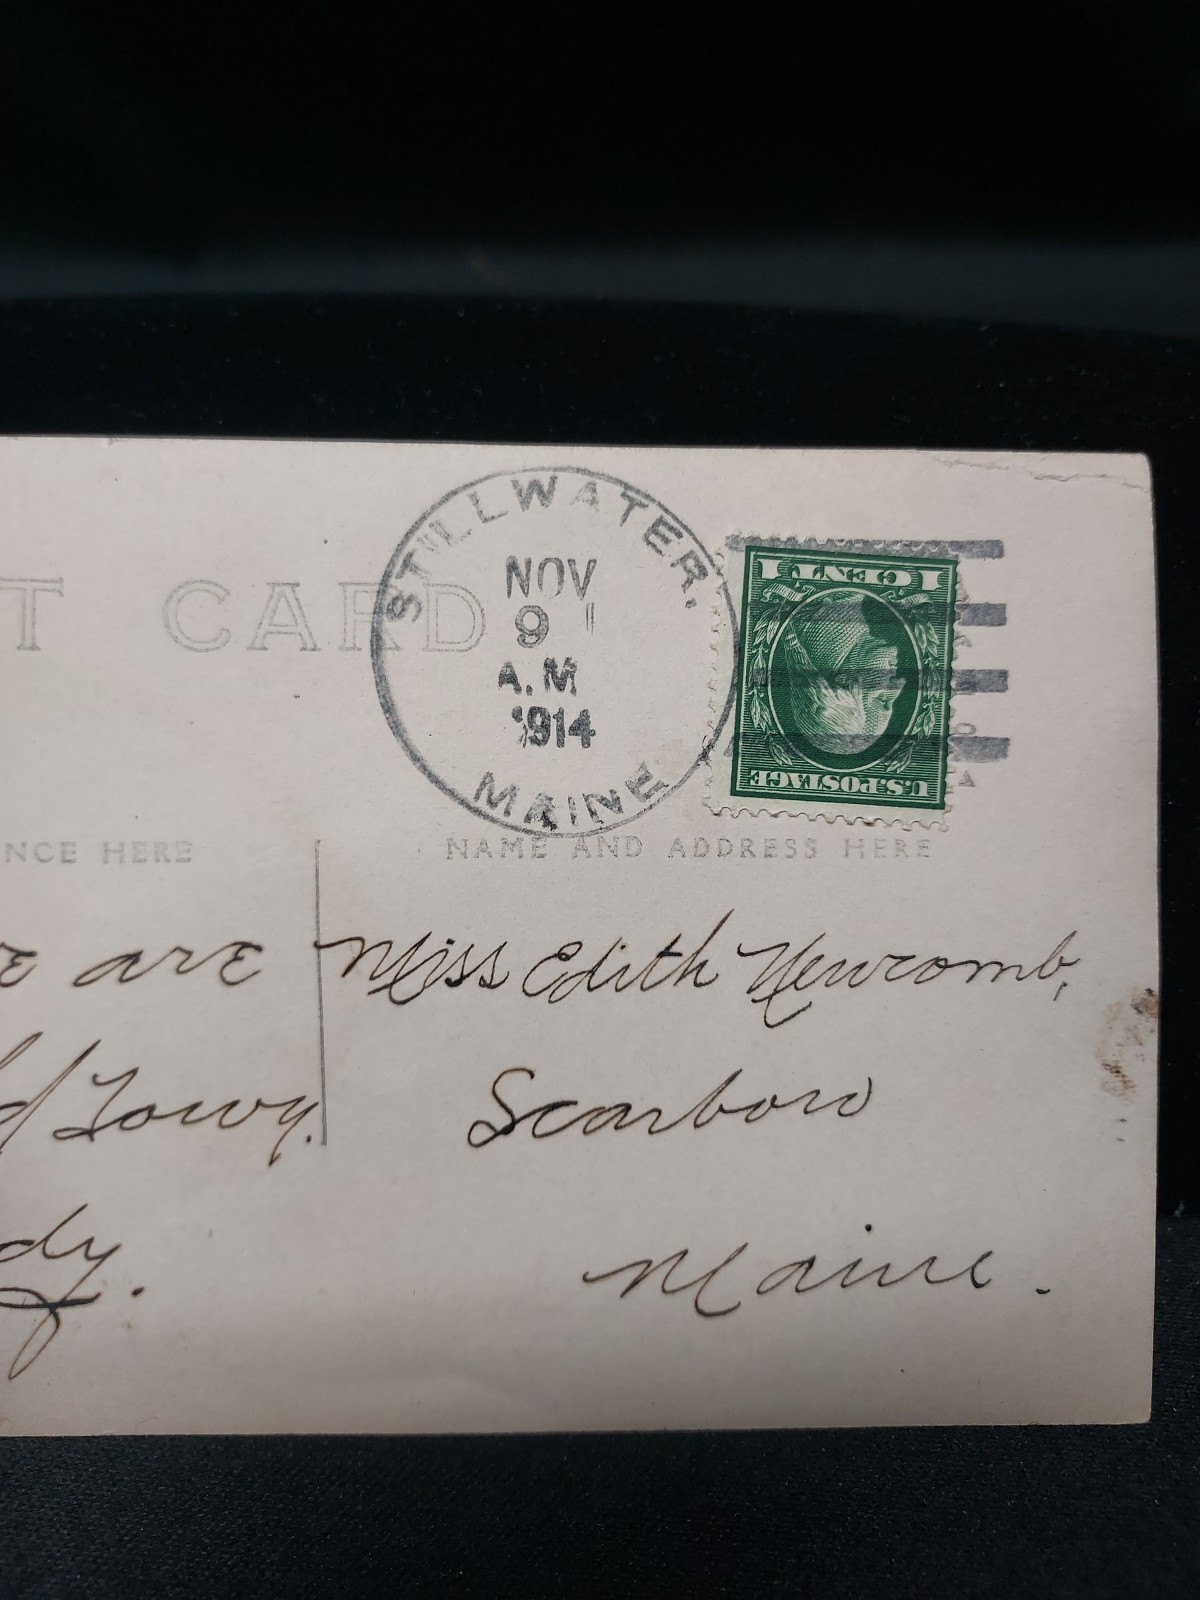 T CARD
STILLWATER.
NOV
9
A.M
1914
MAINE
1 CENT 1
U.S. POSTAGE
NCE HERE
NAME AND ADDRESS HERE
e are
Miss Edith Newcomb,
d Towy.
Scarboro
dy.
Maine.